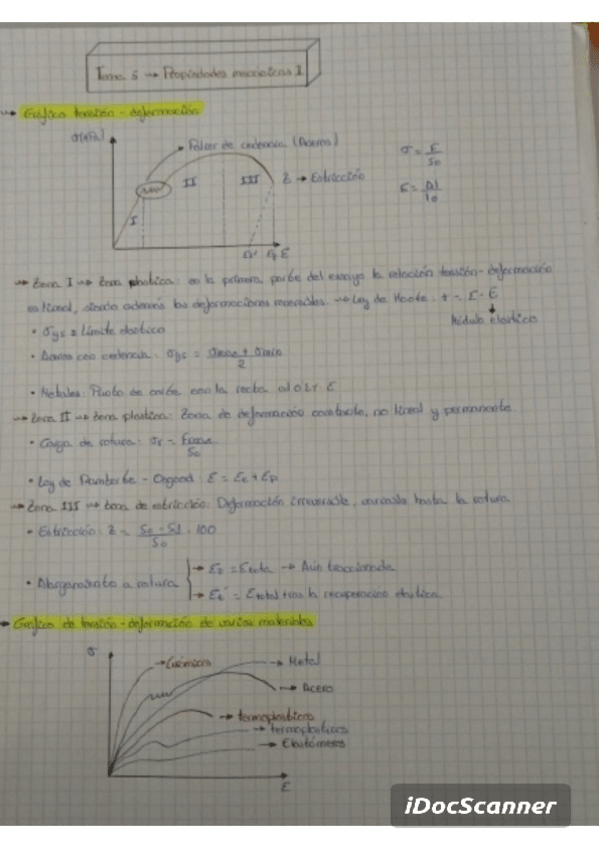 Tema 5 → Propiedades mecánicas I
→ Gráfico tensión - deformación
σ(MPa)
Patear de cedencia (Aceros)
σ = F/S0
II III Z → Estricción
ε = Δl/l0
I
ε
→ Zona I → Zona elástica: en la primera parte del ensayo la relación tensión-deformación
es lineal, siendo además las deformaciones reversibles. → Ley de Hooke:
Módulo elástico
• σys = Límite elástico
• Aceros con cedencia: σys = (σmax + σmin)/2
• Metales: Punto de corte con la recta al 0.2% ε
→ Zona II → Zona plástica: Zona de deformación constante, no lineal y permanente
• Carga de rotura: σr = Fmax/S0
• Ley de Ramberg - Osgood: ε = εe + εp
→ Zona III → Zona de estricción: Deformación irreversible, hasta la rotura
• Estricción: Z = (S0 - Sf)/S0 · 100
• Alargamiento a rotura → = εtotal → Aún traccionada
→ = εtotal tras la recuperación elástica
→ Gráfico de tensión - deformación de varios materiales
σ
→ Cerámica → Metal
→ Acero
→ termoplásticos
→ termoplásticos
→ Elastómeros
ε
iDocScanner